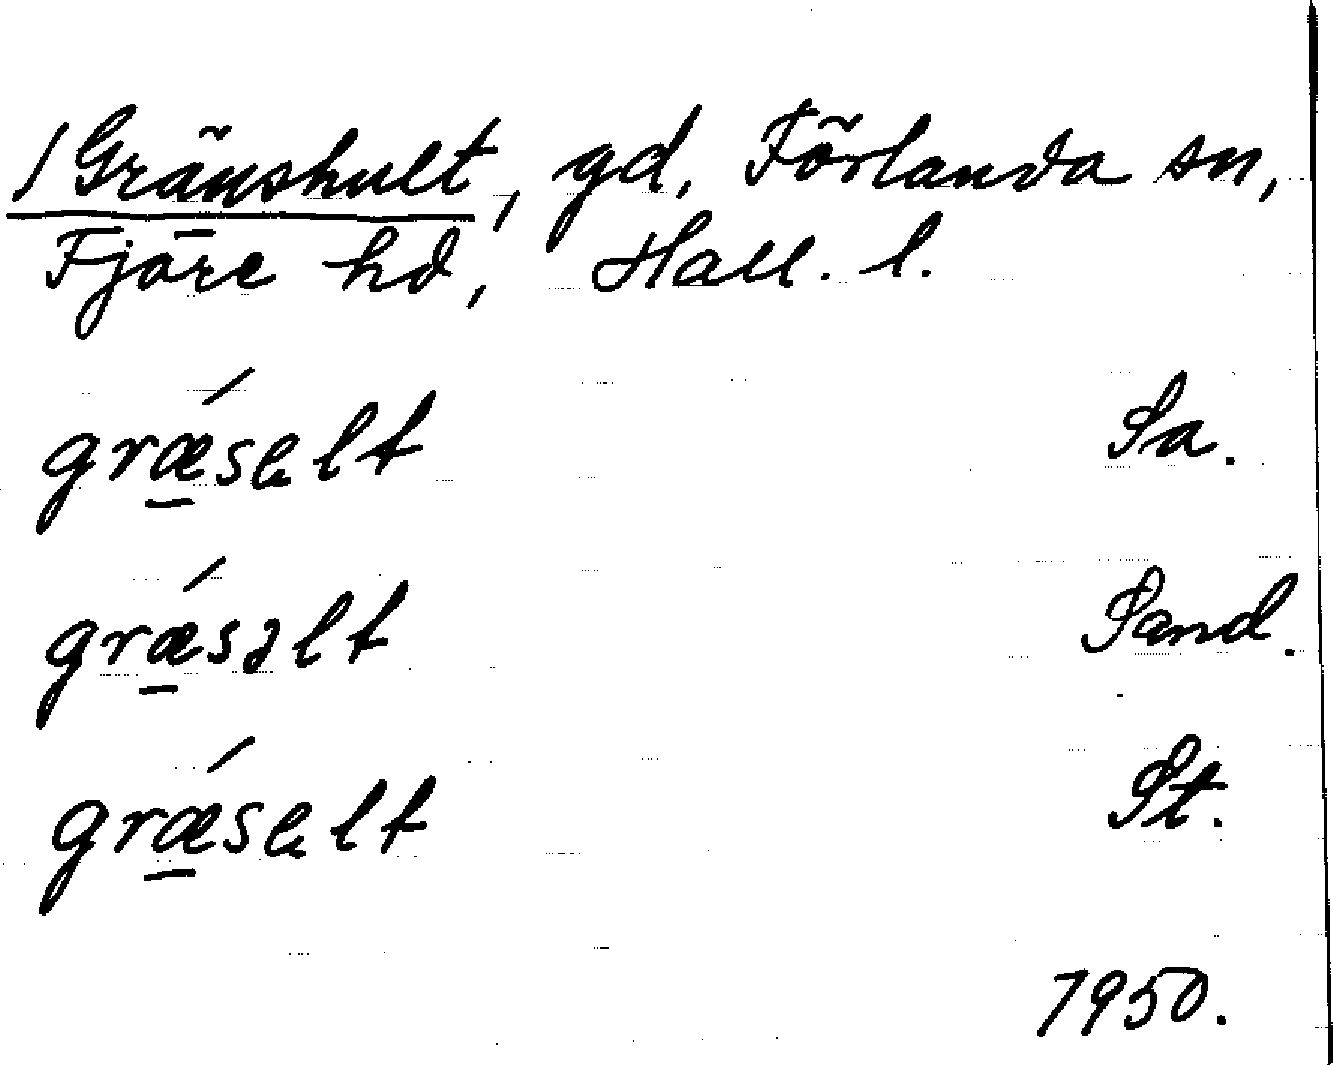 / Gränshult, gd, Förlanda sn,
Fjäre hd, Hall. l.
grǽselt Sa.
grǽsəlt Sand.
grǽselt St.
1950.